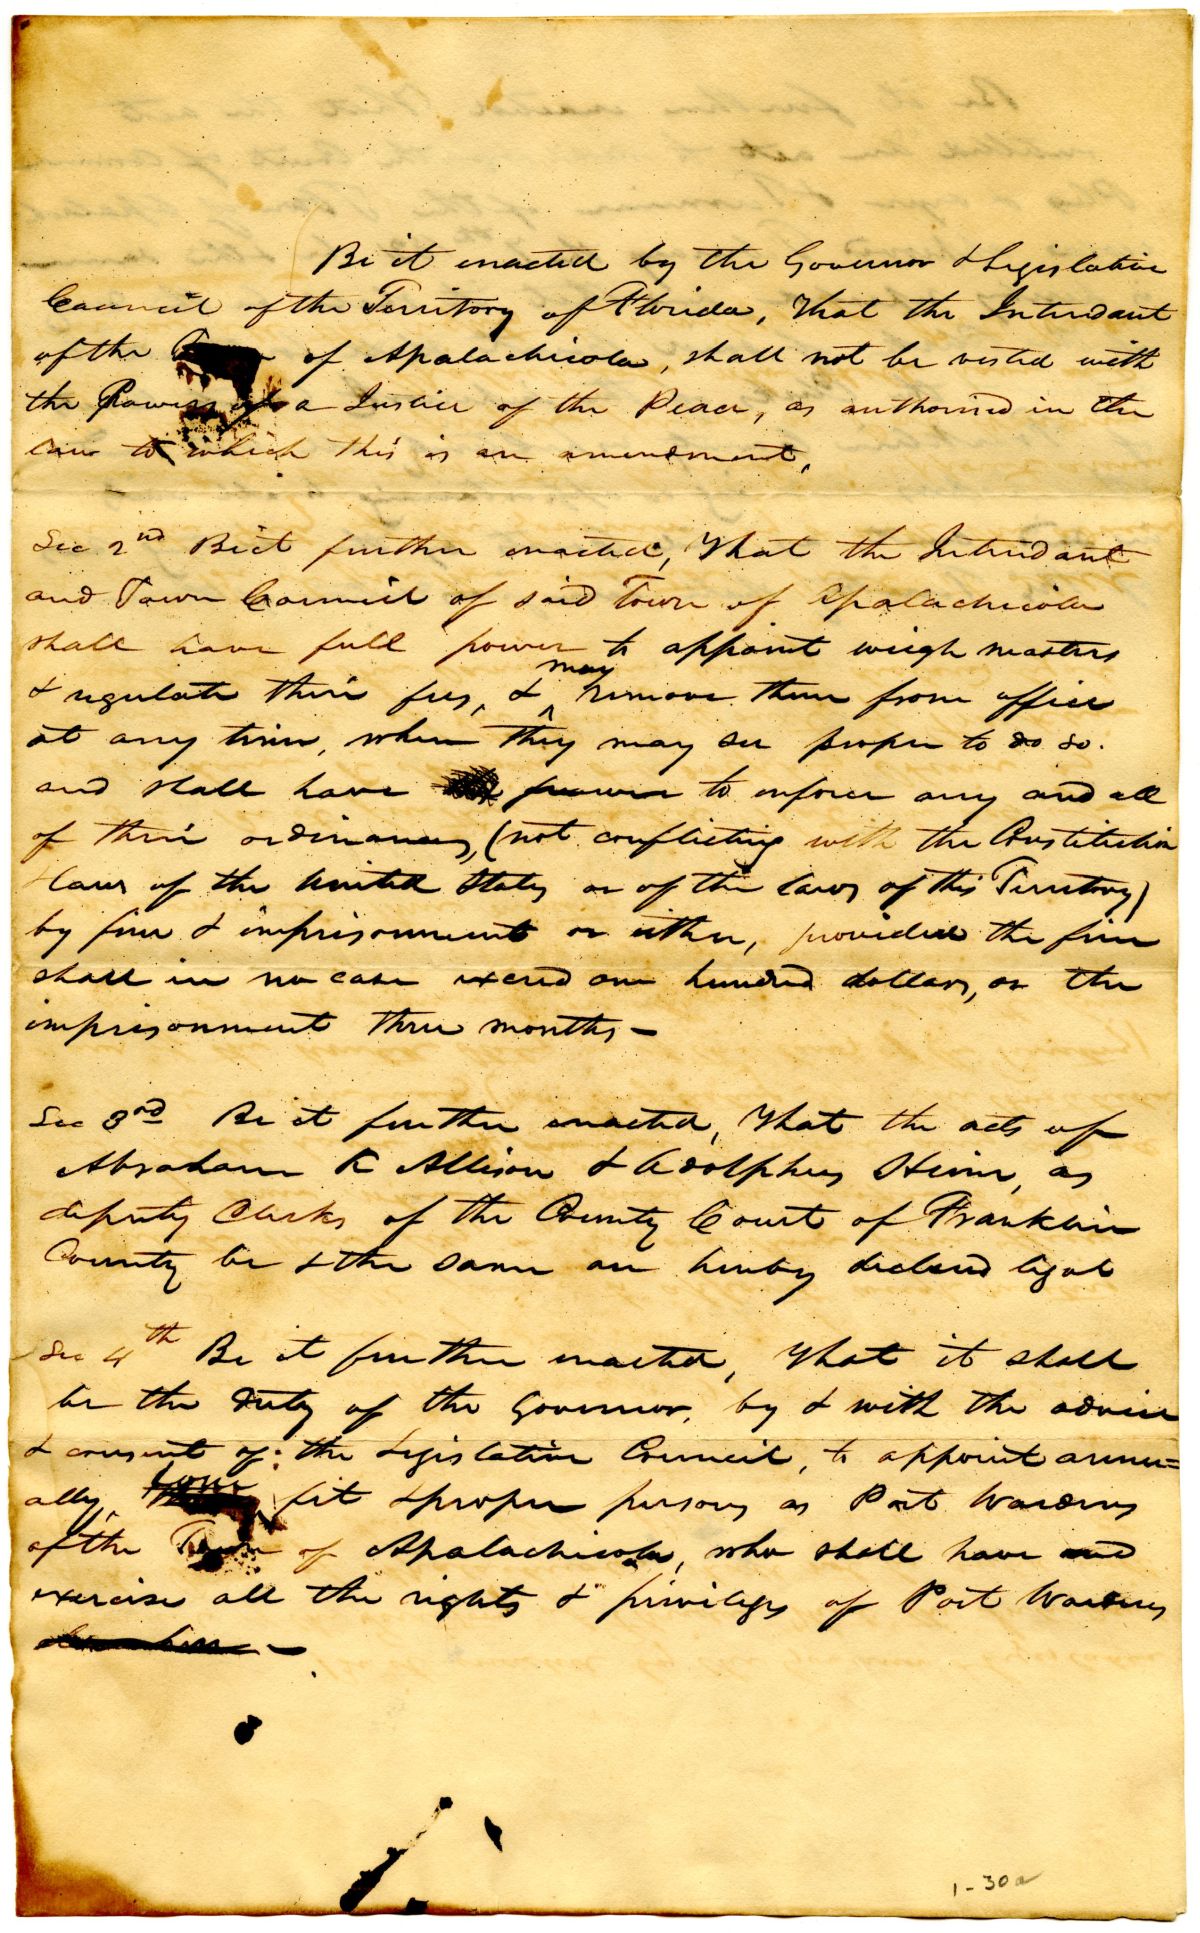 Be it enacted by the Governor & Legislative
Council of the Territory of Florida, That the Intendant
of the Town of Apalachicola, shall not be vested with
the Powers of a Justice of the Peace, as authorised in the
law to which this is an amendment,
Sec 2nd Be it further enacted, That the Intendant
and Town Council of said Town of Apalachicola
shall have full power to appoint weigh masters
& regulate their fees, & may remove them from office
at any time, when they may see proper to do so.
and shall have power to enforce any and all
of their ordinances, (not conflicting with the Constitution
& laws of the United States or of the laws of this Territory)
by fine & imprisonment or either, provided the fine
shall in no case exceed one hundred dollars, or the
imprisonment three months —
Sec 3rd Be it further enacted, That the acts of
Abraham K Allison & Adolphus Heinr, as
deputy Clerks of the County Court of Franklin
County be & the same are hereby declared legal
Sec 4th Be it further enacted, That it shall
be the duty of the Governor, by & with the advice
& consent of the Legislative Council, to appoint annu=
ally, four fit & proper persons as Port Wardens
of the Town of Apalachicola, who shall have and
exercise all the rights & privileges of Port Wardens
1-30a